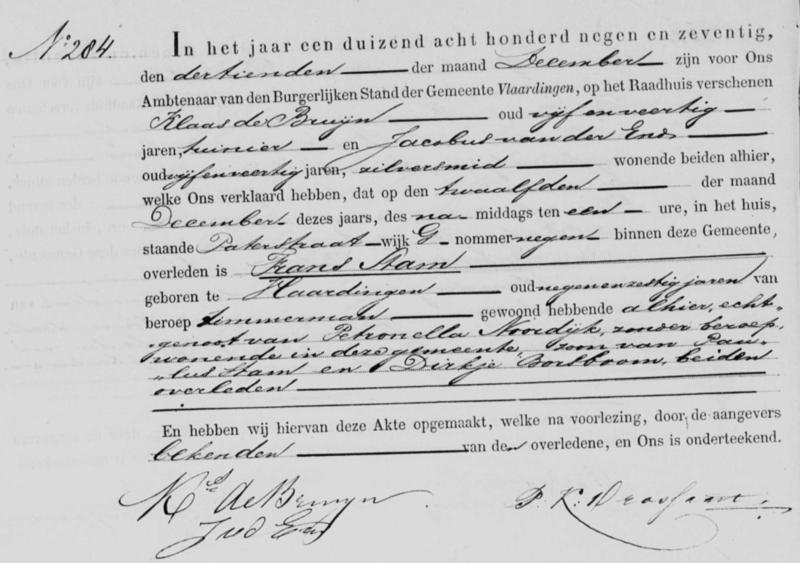 No. 284.
In het jaar een duizend acht honderd negen en zeventig,
den dertienden der maand December zijn voor Ons
Ambtenaar van den Burgerlijken Stand der Gemeente Vlaardingen, op het Raadhuis verschenen
Klaas de Bruijn oud vijf en veertig
jaren, tuinier en Jacobus van der Ende
oud vijf en veertig jaren, zilversmid wonende beiden alhier,
welke Ons verklaard hebben, dat op den twaalfden der maand
December dezes jaars, des na middags ten een ure, in het huis,
staande Paterstraat wijk G nommer negen binnen deze Gemeente,
overleden is Frans Stam
geboren te Vlaardingen oud negen en zestig jaren van
beroep timmerman gewoond hebbende alhier, echt-
genoot van Petronella Noordijk, zonder beroep,
wonende in deze gemeente, zoon van Pau-
lus Stam en Dirkje Borsboom, beiden
overleden
En hebben wij hiervan deze Akte opgemaakt, welke na voorlezing, door de aangevers
bekenden van den overledene, en Ons is onderteekend.
Ks de Bruyn P. K. Drossaart.
JvdEnd